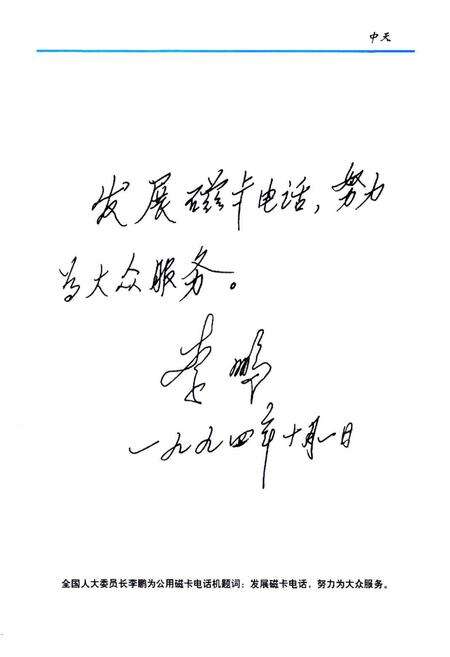 中天
发展磁卡电话，努力
为大众服务。
李鹏
一九九四年十月一日
全国人大委员长李鹏为公用磁卡电话机题词：发展磁卡电话，努力为大众服务。